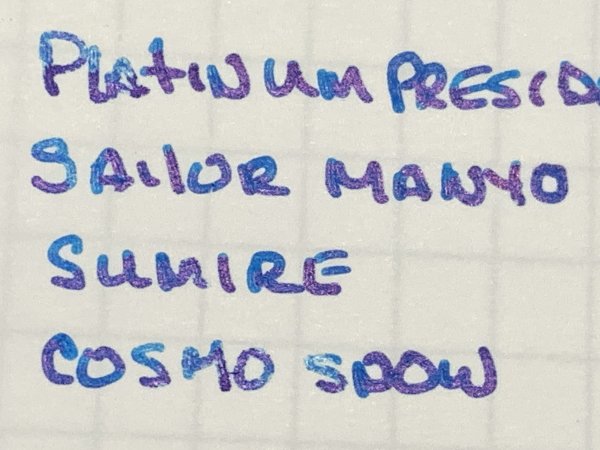 PLATINUM PRESID
SAILOR MANYO
SUMIRE
COSMO SNOW